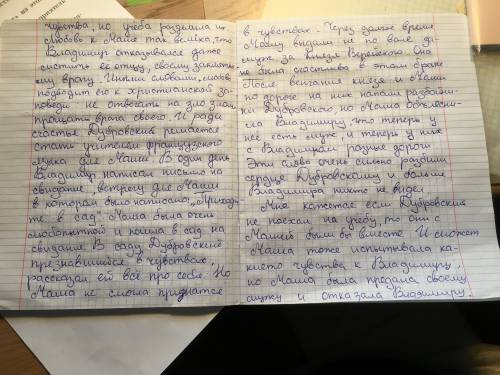 чувства, но учеба разделила их
любовь к Маше так велика, что
Владимир отказывался даже
смстить её отцу, своему заклято-
му врагу. Иными словами, любовь
подводит его к христианской за-
поведи не отвечать на зло злом
прощать врага своего. И ради
счастье Дубровский решается
стать учителем французского
языка для Маши. В один день
Владимир написал письмо на
свидание, встречу для Маши
в котором было написано, "Приходи-
те в сад". Маша была очень
любопытной и пошла в сад на
свидание. В саду Дубровский
презнавшийся в чувствах,
рассказал ей все про себя. Но
Маша не смогла признатся
в чувствах. Через какое время
Машу выдали не по воле за-
муж за князя Верейского. Она
не была счастлива в этом браке
После венчания князя и Маши
по дороге на них напали разбойни-
ки Дубровского, но Маша объясни-
ла Владимиру, что теперь у
нее есть муж и теперь у них
с Владимиром разные дороги
Эти слова очень сильно разбили
сердце Дубровскому и больше
Владимира никто не видел
Мне кажется если Дубровский
не поехал на учебу, то они с
Машей были бы вместе. И может
Маша тоже испытывала ка-
кието чувства к Владимиру,
но Маша была предана своему
мужу и отказала Владимиру.